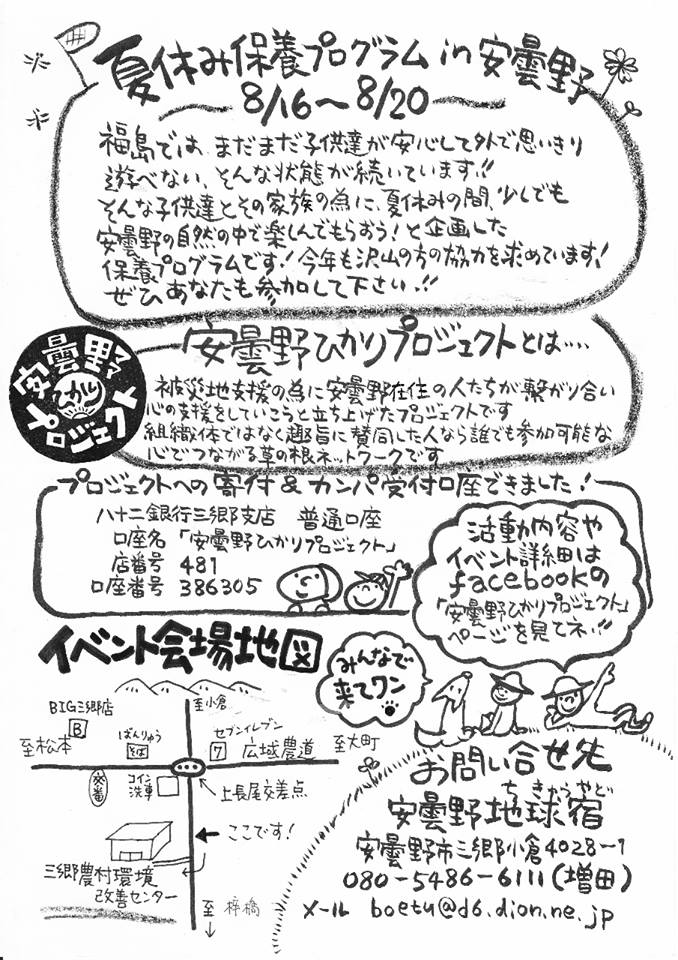 夏休み保養プログラム in 安曇野
〜8/16〜8/20〜
福島では、まだまだ子供達が安心して外で思いきり
遊べない、そんな状態が続いています!!
そんな子供達とその家族の為に、夏休みの間、少しでも
安曇野の自然の中で楽しんでもらおう!と企画した
保養プログラムです!今年も沢山の方の協力を求めています!
ぜひあなたも参加して下さい!!
安曇野
ひかり
プロジェクト
安曇野ひかりプロジェクトとは‥‥
被災地支援の為に安曇野在住の人たちが繋がり合い
心の支援をしていこうと立ち上げたプロジェクトです
組織体ではなく趣旨に賛同した人なら誰でも参加可能な
心でつながる草の根ネットワークです
プロジェクトへの寄付&カンパ受付口座できました!
八十二銀行三郷支店 普通口座
口座名「安曇野ひかりプロジェクト」
店番号 481
口座番号 386305
活動内容や
イベント詳細は
facebookの
「安曇野ひかりプロジェクト」
ページを見てネ!!
イベント会場地図
みんなで
来てワン
至小倉
BIG三郷店
B
至松本
ばんりゅう
そば
セブンイレブン
7
広域農道
至大町
交番
コイン
洗車
上長尾交差点
ここです!
三郷農村環境
改善センター
至 梓橋
お問い合せ先
ちきゅうやど
安曇野地球宿
安曇野市三郷小倉4028-1
080-5486-6111(増田)
メール boetu@d6.dion.ne.jp